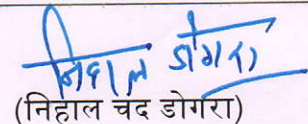 निहाल डोगरा
(निहाल चंद डोगरा)